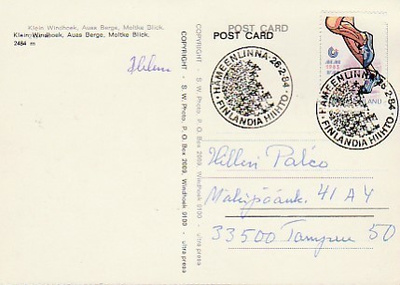 Klein Windhoek, Auas Berge, Moltke Blick,
Klein Windhoek, Auas Berge, Moltke Blick,
2484 m
Helena
COPYRIGHT - S. W. Press, P. O. Box 2669, Windhoek 9100 - ultra press
COPYRIGHT - S. W. Press, P. O. Box 2669, Windhoek 9100 - ultra press
POST CARD
POST CARD
1983
HÄMEENLINNA 26·2·84
FINLANDIA HIIHTO
HÄMEENLINNA 2·84
FINLANDIA HIIHTO
Hilleri
41 A 4
33500 Tampere